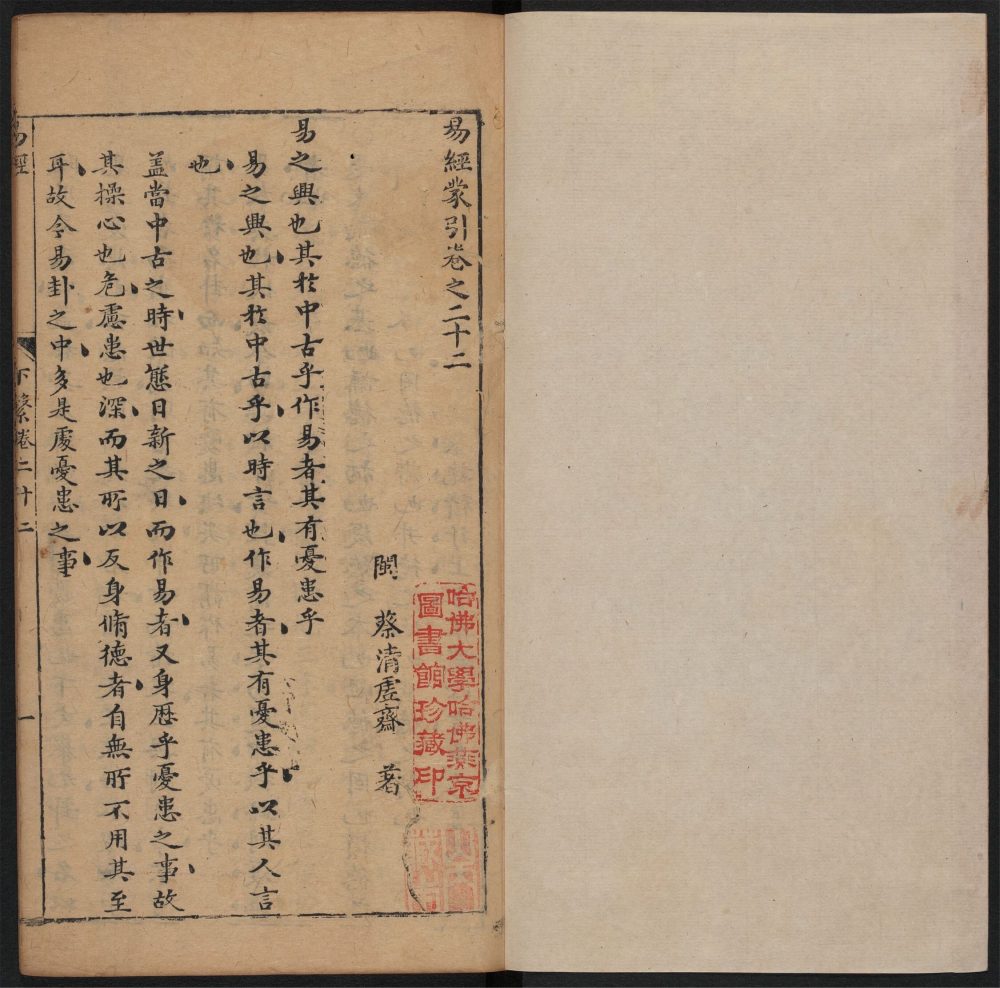 易經蒙引卷之二十二
閩 蔡清虛齋 著
哈佛大學哈佛燕京
圖書館珍藏印
易之興也其於中古乎作易者其有憂患乎
易之興也其於中古乎以時言也作易者其有憂患乎以其人言
也
蓋當中古之時世態日新之日而作易者又身歷乎憂患之事故
其操心也危慮患也深而其所以反身脩德者自無所不用其至
耳故今易卦之中多是處憂患之事
易經
下繫卷二十二
一